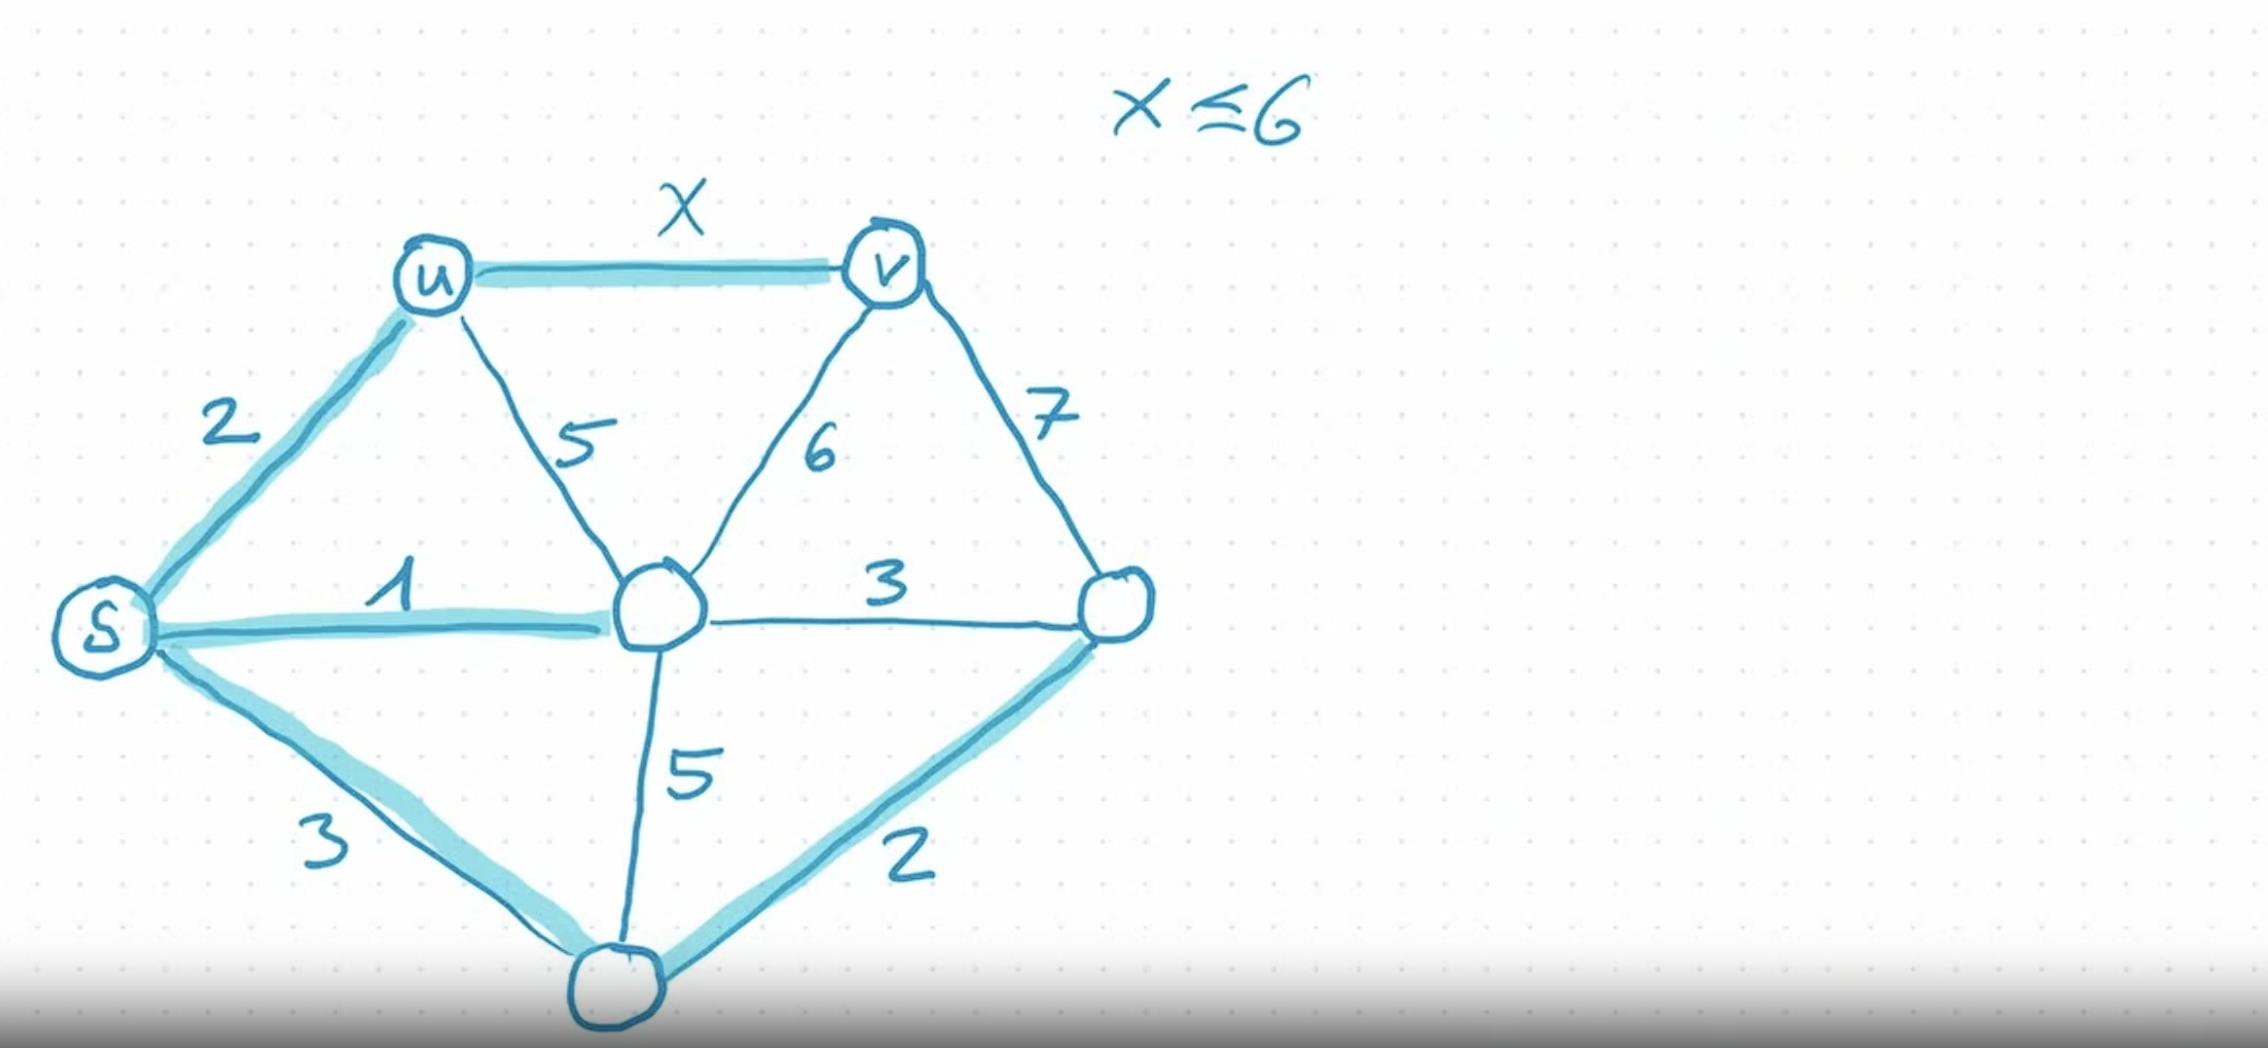 x ≤ 6
x
u
v
2
5
6
7
1
3
s
5
3
2